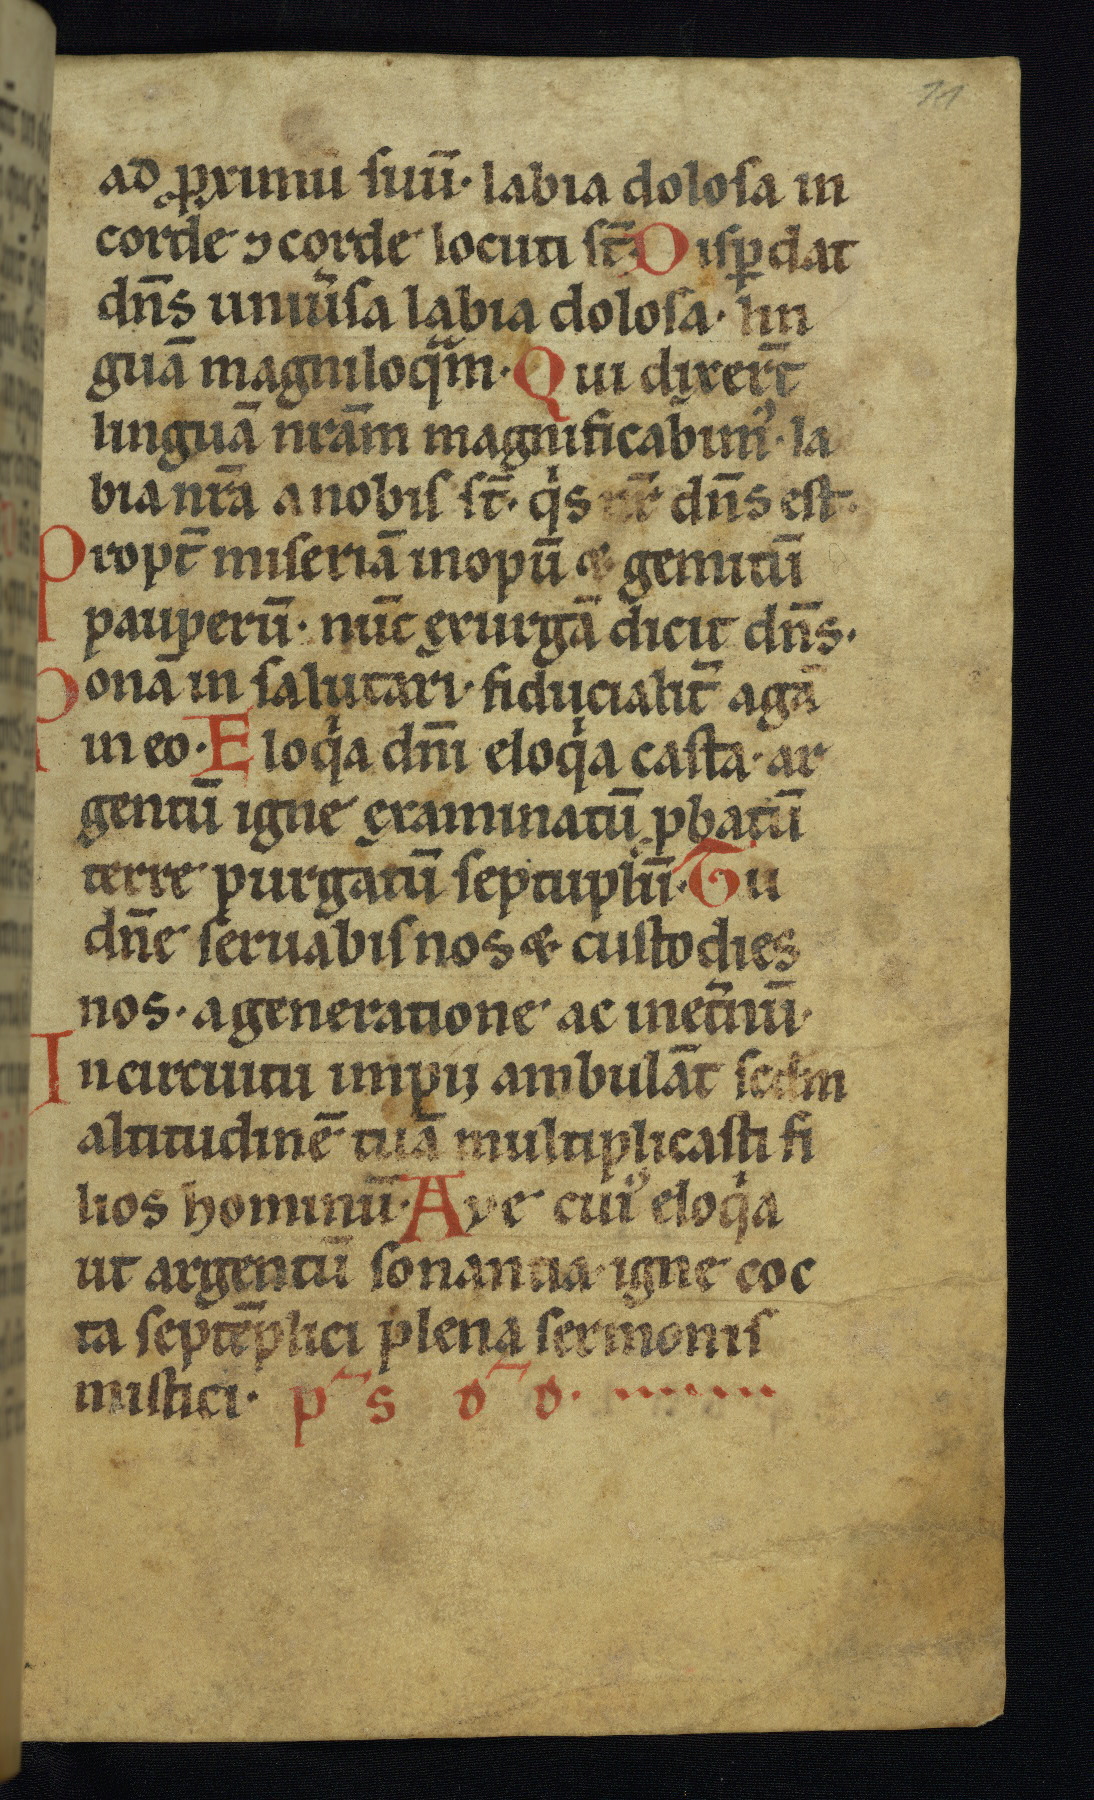 11
ad ꝓximū suū· labia dolosa in
corde ⁊ corde locuti st̄· Disꝑdat
dn̄s uniu̾sa labia dolosa· lin
guā magniloqͣm· Qui dixer̄t
linguā nr̄am magnificabimꝰ· la
bia nr̄a a nobis st̄· qͥs nr̄ dn̄s est·
Propt̄ miseriā inopū & gemitū
pauperū· nūc exurgā dicit dn̄s·
Ponā in salutari· fiducialit̄ agā
in eo· Eloqͥa dn̄i eloqͥa casta· ar
gentū igne examinatū ꝓbatū
terre purgatū septuplū· Tu
dn̄e seruabis nos & custodies
nos· a generatione ac inet̾nū·
In circuitu impij ambulāt scdm
altitudinē tuā multiplicasti fi
lios hominū· Aye cuiꝰ eloqͥa
ut argentū sonantia igne coc
ta septēplici plena sermonis
mistici· p̄s d̄d·